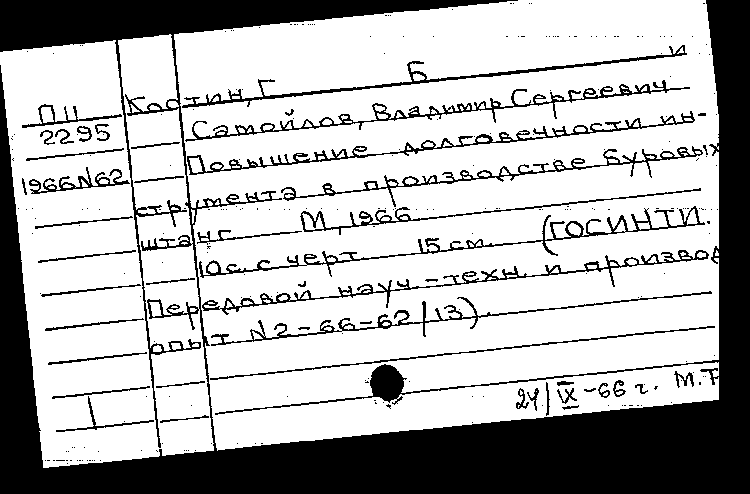 Костин, Г Б и
П 11
2295
1966N62
Самойлов, Владимир Сергеевич
Повышение долговечности ин-
струмента в производстве буровых
штанг М, 1966
10 с. с черт 15 см. (ГОСИНТИ.
Передовой науч-техн. и производ
опыт N2-66-62/13).
24/IX-66 г. М.Т